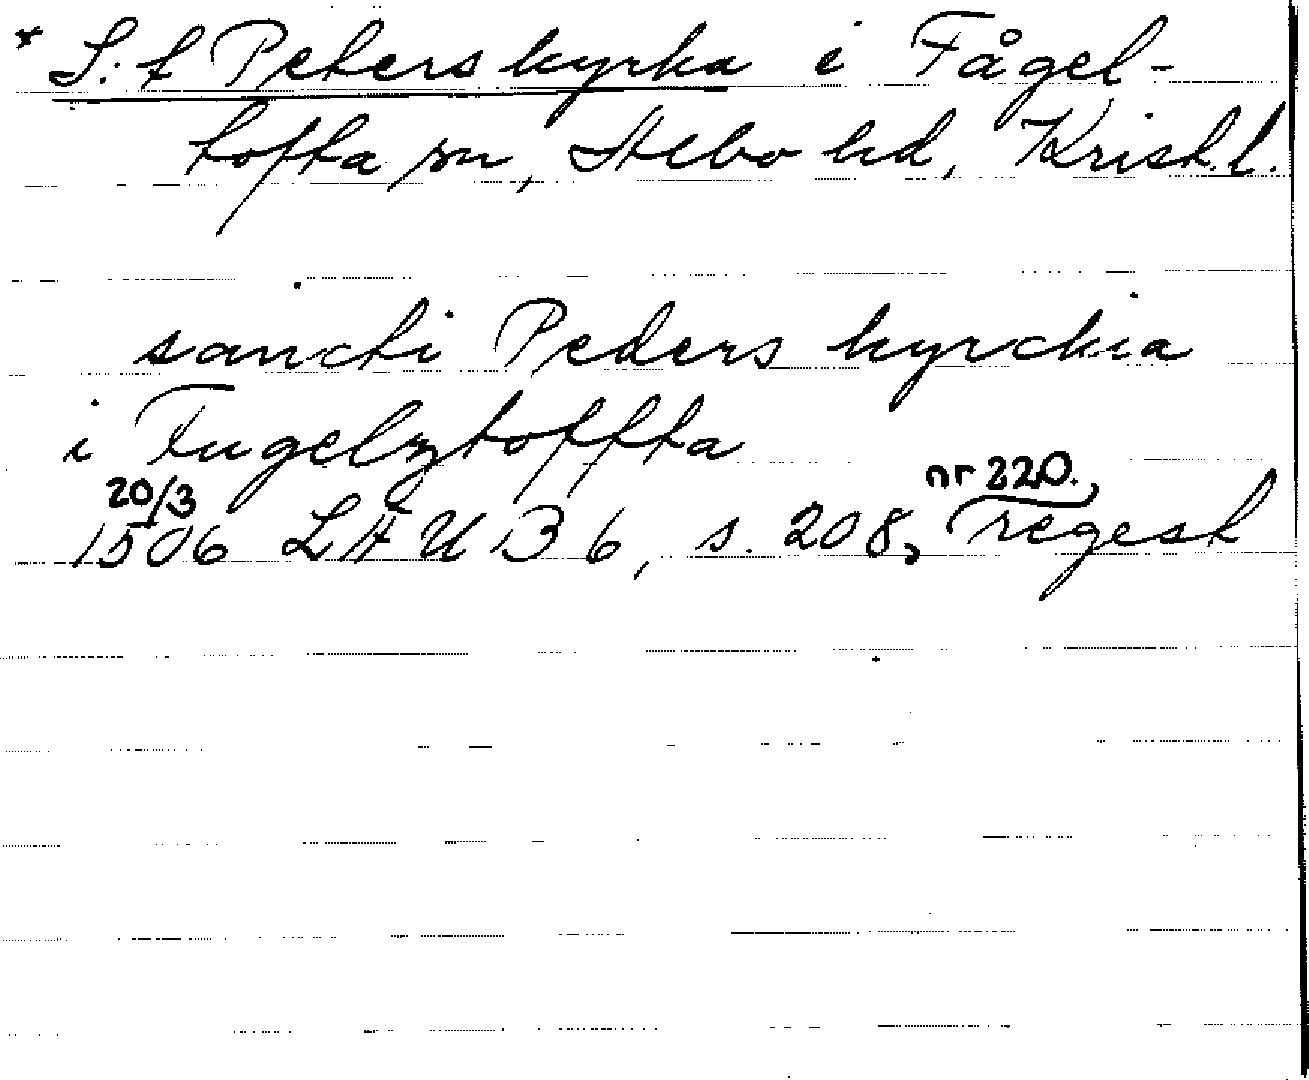 * S:t Peters kyrka i Fågel-
tofta sn, Albo hd, Krist.l.
sancti Peders kyrckia
i Fugelztoffta
20/3 nr 220.,
1506 LÄUB 6, s. 208, regest